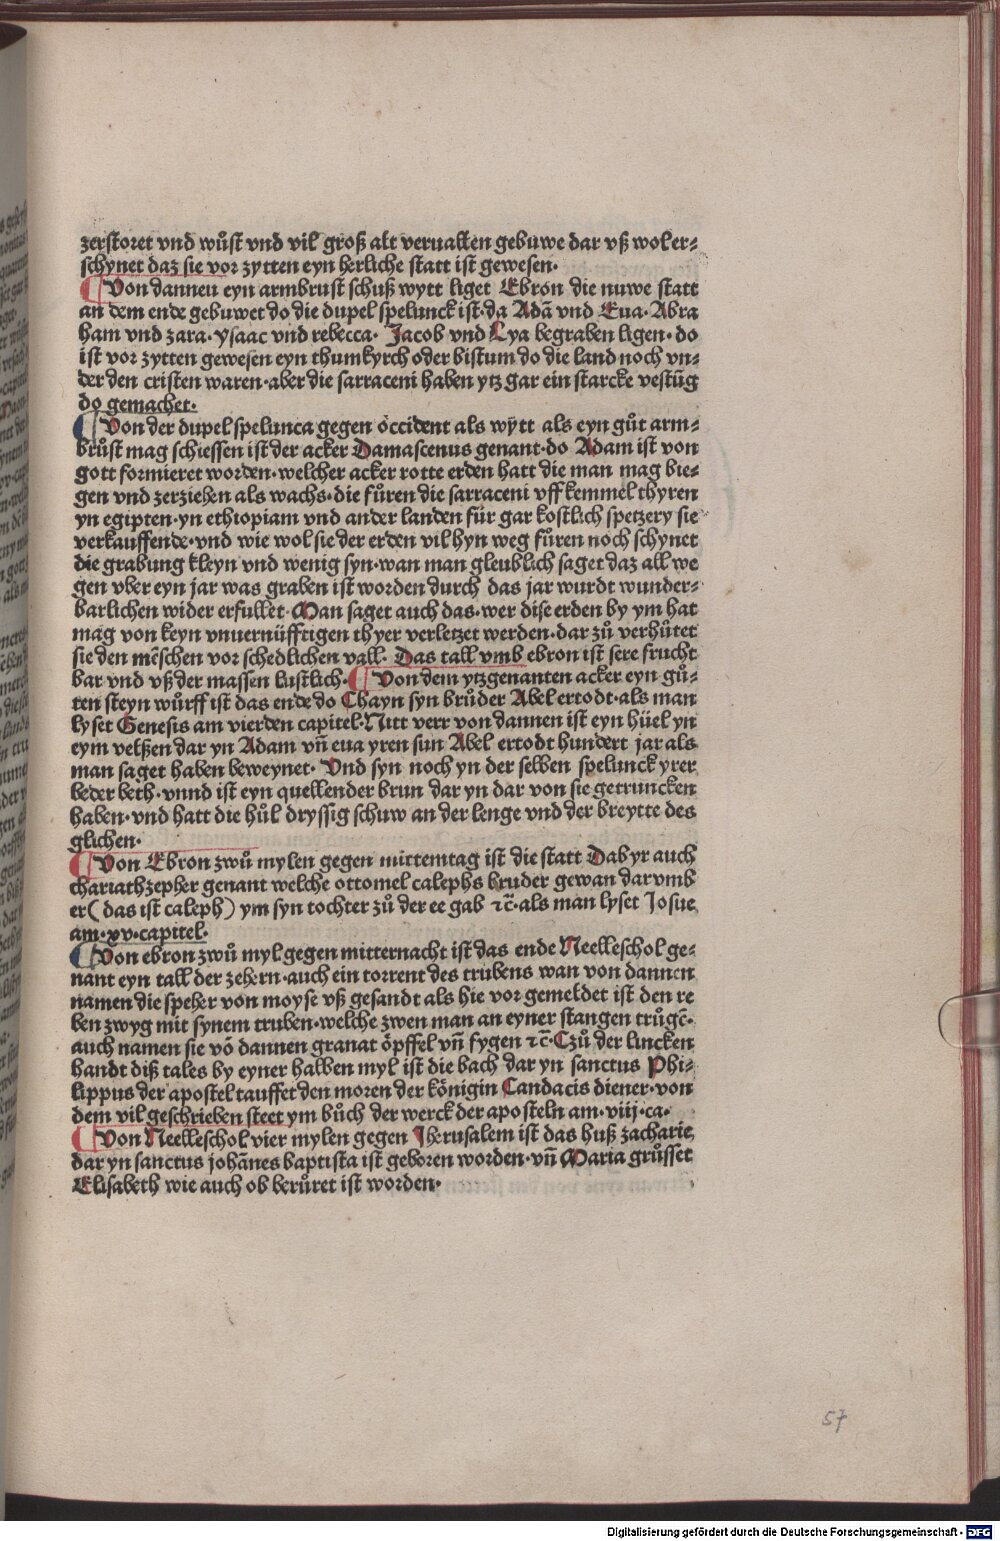 zerstoret vnd wůst vnd vil groß alt veruallen gebuwe dar vß wol er⸗
schynet daz sie vor zytten eyn herliche statt ist gewesen·
¶ Von danneu eyn armbrust schuß wytt liget Ebron die nuwe statt
an dem ende gebuwet do die dupel spelunck ist·da Adã vnd Eua·Abra
ham vnd zara·ysaac vnd rebecca· Jacob vnd Lya begraben ligen·do
ist vor zytten gewesen eyn thumkyrch oder bistum do die land noch vn⸗
der den cristen waren·aber die sarraceni haben ytz gar ein starcke vestũg
do gemachet·
¶ Von der dupel spelunca gegen occident als wytt als eyn gůt arm⸗
brůst mag schiessen ist der acker Damascenus genant·do Adam ist von
gott formieret worden·welcher acker rotte erden hatt die man mag bie⸗
gen vnd zerziehen als wachs·die fůren die sarraceni vff kemmel thyren
yn egipten·yn ethiopiam vnd ander landen für gar kostlich spetzery sie
verkauffende·vnd wie wol sie der erden vil hyn weg fůren noch schynet
die grabung kleyn vnd wenig syn·wan man gleublich saget daz all we
gen vber eyn jar was graben ist worden durch das jar wurdt wunder⸗
barlichen wider erfullet·Man saget auch das·wer dise erden by ym hat
mag von keyn vnuernüfftigen thyer verletzet werden·dar zů verhůtet
sie den mẽschen vor schedlichen vall· Das tall vmb ebron ist sere frucht
bar vnd vß der massen lustlich· ¶ Von dem ytzgenanten acker eyn gů⸗
ten steyn wůrff ist das ende do Chayn syn brůder Abel ertodt·als man
lyset Genesis am vierden capitel·Nitt verr von dannen ist eyn hüel yn
eym velßen dar yn Adam vñ eua yren sun Abel ertodt hundert jar als
man saget haben beweynet· Vnd syn noch yn der selben spelunck yrer
beder beth·vnnd ist eyn quellender brun dar yn dar von sie getruncken
haben·vnd hatt die hůl dryssig schuw an der lenge vnd der breytte des
glichen·
¶ Von Ebron zwů mylen gegen mittemtag ist die statt Dabyr auch
chariathzepher genant welche ottomel calephs bruder gewan dar vmb
er(das ist caleph) ym syn tochter zů der ee gab ⁊c̃·als man lyset Josue
am·xv·capitel·
¶ Von ebron zwů myl gegen mitternacht ist das ende Neelleschol ge⸗
nant eyn tall der zehern·auch ein torrent des trubens wan von dannen
namen die speher von moyse vß gesandt als hie vor gemeldet ist den re
ben zwyg mit synem truben·welche zwen man an eyner stangen trůgẽ·
auch namen sie võ dannen granat öpffel vñ fygen ⁊c̃·Czů der lincken
handt diß tales by eyner halben myl ist die bach dar yn sanctus Phi⸗
lippus der apostel tauffet den moren der königin Candacis diener·von
dem vil geschrieben steet ym bůch der werck der aposteln am·viij·ca·
¶ Von Neelleschol vier mylen gegen Jherusalem ist das huß zacharie
dar yn sanctus johãnes baptista ist geboren worden·vñ Maria grůsset
Elisabeth wie auch ob berůret ist worden·
57
Digitalisierung gefördert durch die Deutsche Forschungsgemeinschaft · DFG